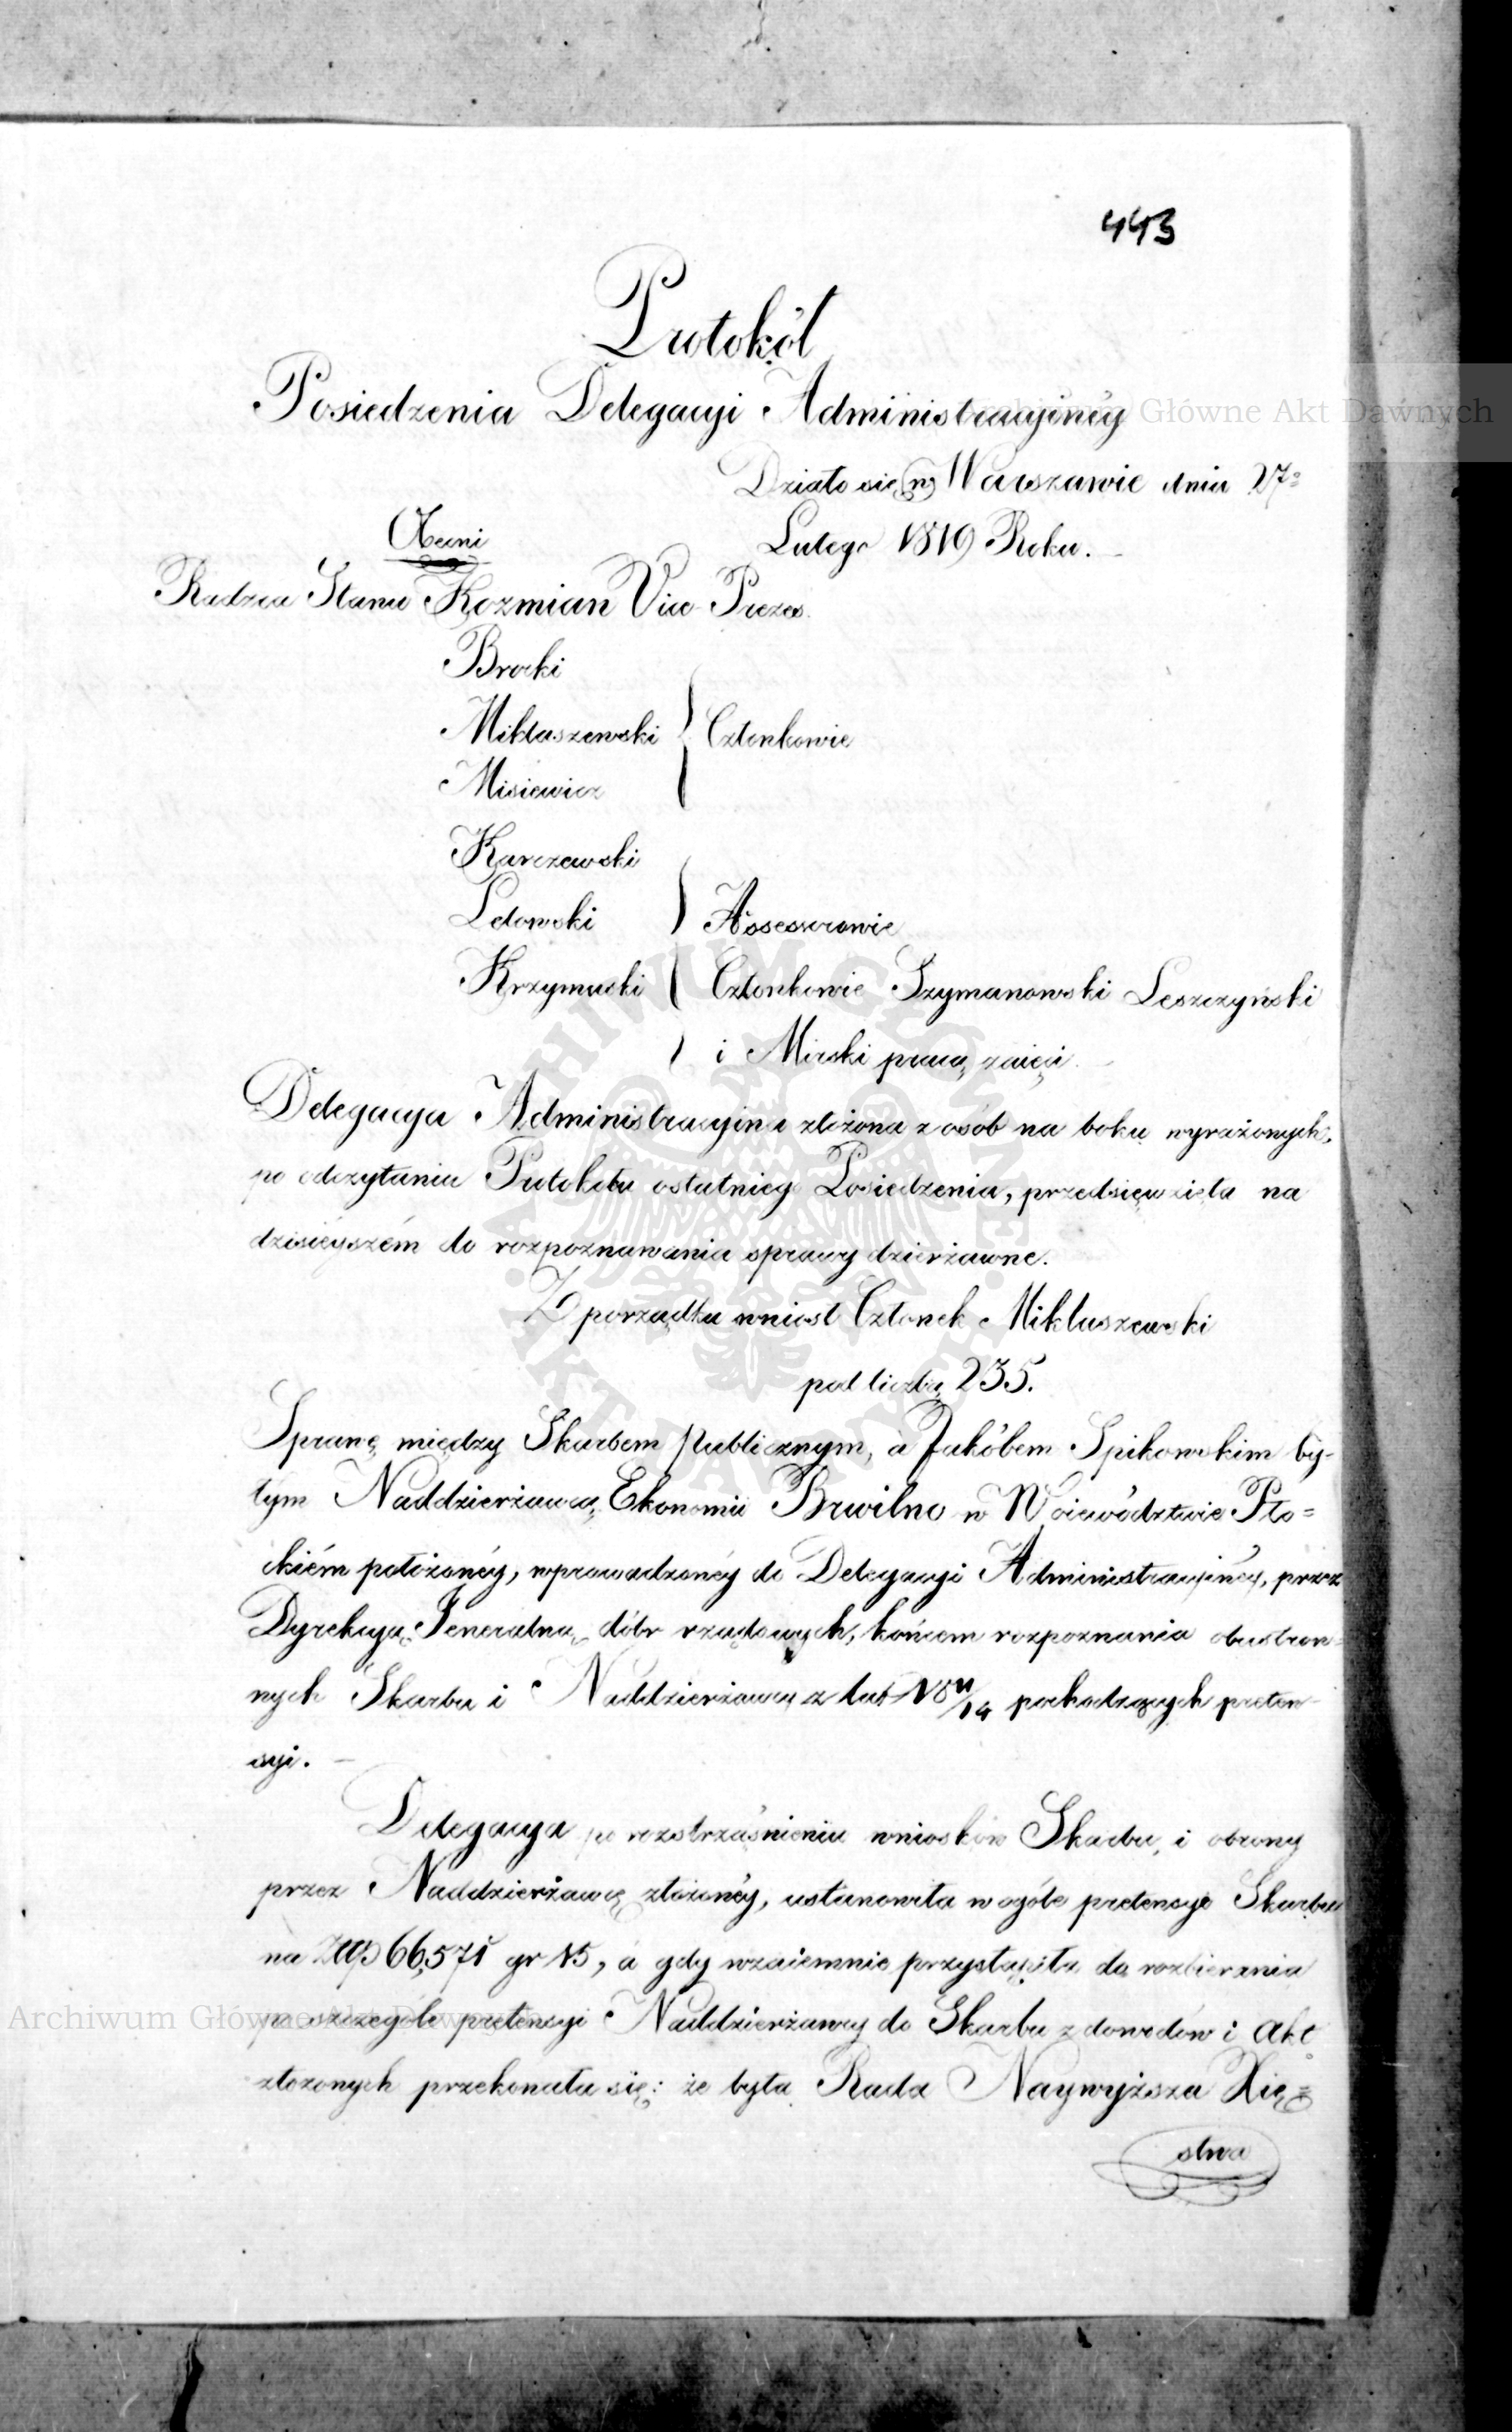 443
Protokół
Posiedzenia Delegacyi Administracyinéy
Działo się w Warszawie dnia 27º
Lutego 1819 Roku.
Obecni
Radzca Stanu Kozmian Vice Prezes.
Brocki
Mikłaszewski } Członkowie
Misiewicz
Karczewski
Ledowski } Assessorowie
Krzymuski Członkowie Szymanowski Leszczyński
i Mirski pracą zaięci.
Delegacya Administracyina złożona z osób na boku wyrażonych,
po odczytaniu Protokołu ostatniego Posiedzenia, przedsięwzięła na
dzisieyszém do rozpoznawania sprawy dzierżawne.
Z porządku wniosł Członek Mikłaszewski
pod liczbą 235.
Sprawę między Skarbem Publicznym, a Jakóbem Spikowskim by-
łym Naddzierżawcą Ekonomii Brwilno w Woiewództwie Pło=
ckiém położonéy, wprowadzonéy do Delegacyi Administracyinéy, przez
Dyrekcyą Jeneralną dóbr rządowych, końcem rozpoznania obustron=
nych Skarbu i Naddzierżawcy z lat 18 11/14 pochodzących preten-
syi.
Delegacya po roztrząśnieniu wniosków Skarbu, i obrony
przez Naddzierżawcę złożonéy, ustanowiła w ogóle pretensye Skarbu
na Złłp 66,571 gr 15, a gdy wzaiemnie przystąpiła do rozbierania
w szczególe pretensyi Naddzierżawcy do Skarbu z dowodów i Akt
złożonych przekonała się: że była Rada Naywyższa Xię=
stwa
Archiwum Główne Akt Dawnych
Archiwum Główne Akt Dawnych
ARCHIWUM GŁÓWNE AKT DAWNYCH